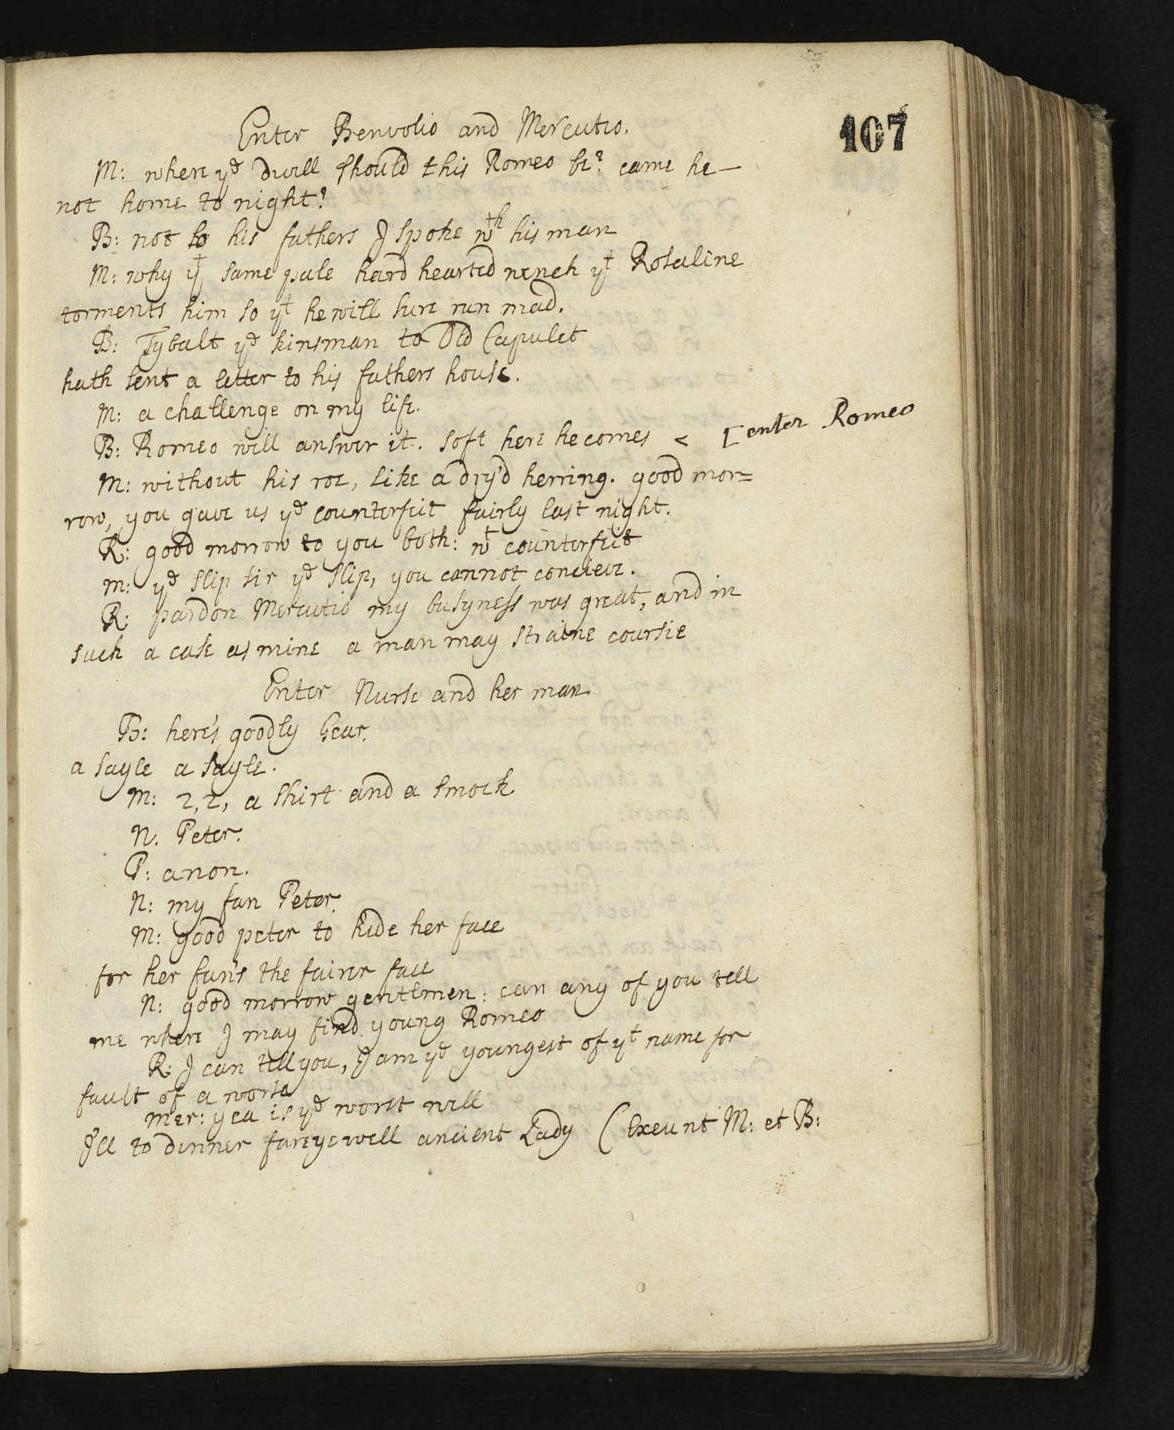 107
Enter Benvolio and Mercutio.
M: where yᵉ Divill should this Romeo be? came he—
not home to night?
B: not to his fathers I spoke wᵗʰ his man
M: why yᵗ same pale hard hearted wench yᵗ Rosaline
torments him so yᵗ he will sure run mad.
B: Tybalt yᵉ kinsman to Old Capulet
hath sent a letter to his fathers house.
M: a challenge on my life.
B: Romeo will answer it. soft here he comes < [enter Romeo
M: without his roe, like a dry'd herring. good mor=
row, you gave us yᵉ counterfeit fairly last night.
R: good morrow to you both: wᵗ counterfeit
M: yᵉ slip sir yᵉ slip, you cannot concieve.
R: pardon Mercutio my busyness was great, and in
such a case as mine a man may straine coursie
Enter Nurse and her man
B: here's goodly Gear.
a sayle a sayle.
M: 2, 2, a shirt and a smock
N. Peter.
P: anon.
N: my fan Peter
M: good peter to hide her face
for her fan's the fairer face
N: good morrow gentlmen: can any of you tell
me where I may find young Romeo
R: I can tell you, I am yᵉ youngest of yᵗ name for
fault of a worse
Mer: yea is yᵉ worst well
I'll to dinner fareyewell ancient Lady (Exeunt M: et B: